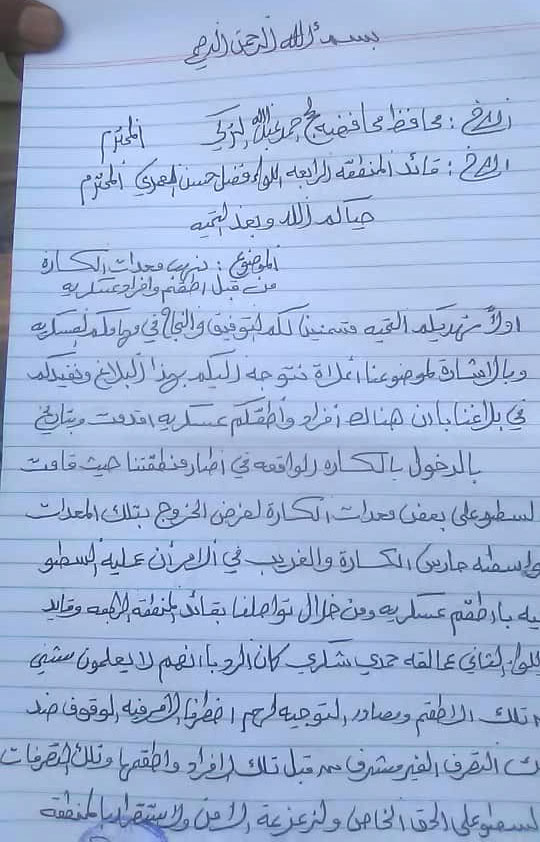 بسم الله الرحمن الرحيم
الاخ : محافظ محافظة لحج احمد عبدالله التركي المحترم
الاخ : قائد المنطقه الرابعه اللواء فضل حسن العمري المحترم
حياكم الله وبعد التحيه
الموضوع : نهب معدات الكسارة
من قبل اطقم وافراد عسكريه
اولاً نهديكم التحيه ومتمنين لكم التوفيق والنجاح في مهامكم العسكريه
وبالاشارة لموضوعنا اعلاة نتوجه اليكم بهذا البلاغ ونفيدكم
في بلاغنا بان هناك افراد واطقم عسكريه اقدمت وبتاريخ
بالدخول بالكساره الواقعه في اطار منطقتنا حيث قامت
لسطو على بعض معدات الكسارة لغرض الخروج بتلك المعدات
واسطه حارس الكسارة والغريب في الامر أن عملية السطو
يه باطقم عسكريه ومن خلال تواصلنا بقائد المنطقه الرابعه وقايد
للواء الثاني عمالقه حمدي شكري كان الرد بانهم لا يعلمون بشيى
تلك الاطقم ومصادر التوجيه لهم اضطرنا الامر فيه الوقوف ضد
ك التصرف الغير مشرف من قبل تلك الافراد واطقمها وتلك التصرفات
لسطو على الحق الخاص ولزعزعة الامن والاستقرار بالمنطقة